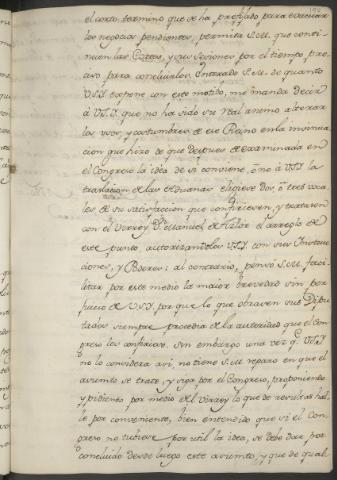 el corto termino que se ha prefijado para evacuar
los negocios pendientes, permita S.M. que conti-
nuen las Cortes, y sus sesiones por el tiempo pre-
ciso para concluirlos. Enterado S.M. de quanto
V.S.I. expone con este motivo, me manda decir
à V.S.I. que no ha sido su Real animo alterar
los usos, y costumbres de ese Reyno en la insinua-
cion que hizo de que despues de examinada en
el Congreso la idea de si conviene, ò no à V.S.I. la
traslacion de las Aduanas eligiese dos, ò tres voca-
les de su satisfaccion que confiriesen, y tratasen
con el Virrey Dn. Manuel de el arreglo de
este punto, autorizandolos V.S.I. con sus Instruc-
ciones, y Poderes: al contrario, pensò S.M. faci-
litar por este medio la maior brevedad sin per-
juicio de V.S.I. por que lo que obrasen sus Dipu-
tados siempre procedia de la autoridad que el Con-
greso les confiriese. Sin embargo una vez q.e V.S.I.
no lo considera asi, no tiene S.M. reparo en que el
asumpto se trate, y siga por el Congreso, proponiendo
y pidiendo por medio del Virrey lo que de resultas hal-
le por conveniente, bien entendido que si el Con-
greso no tubiese por util la idea, se debe dar por
concluido desde luego este asumpto, y que de qual